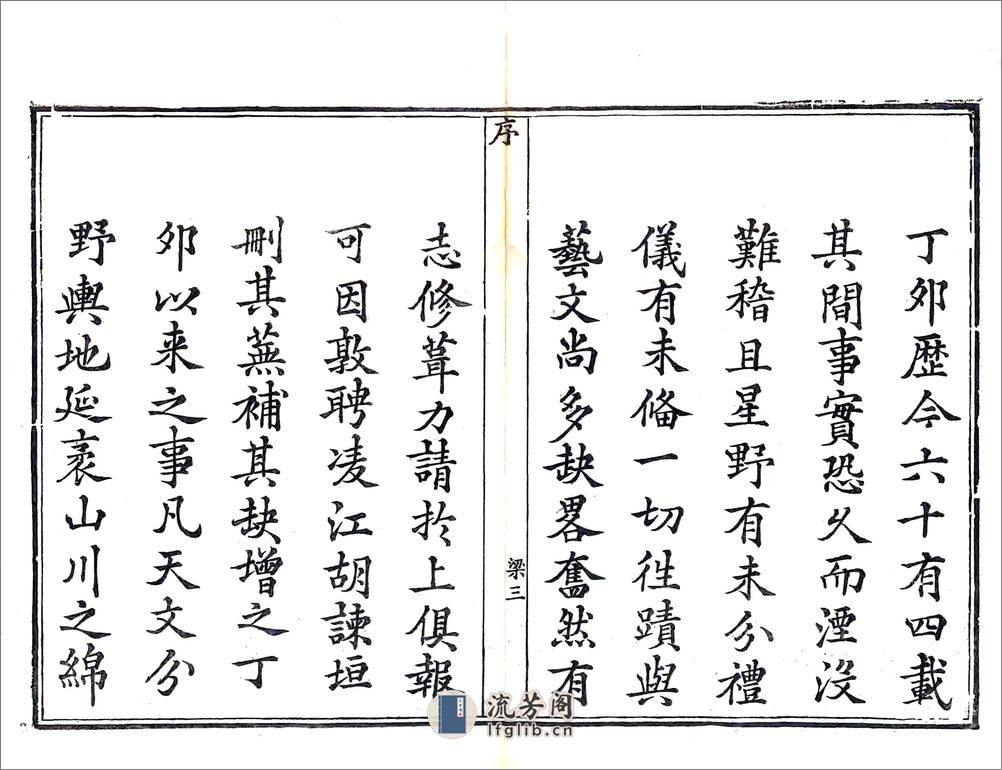 丁夘歴今六十有四載
其間事實恐乆而湮沒
難稽且星野有未分禮
儀有未俻一切徃蹟與
藝文尚多缺畧奮然有
序
梁三
志修葺力請扵上俱報
可因敦聘凌江胡諫垣
刪其蕪補其缺增之丁
夘以来之事凡天文分
野輿地延袤山川之綿
流芳閣
lfglib.cn